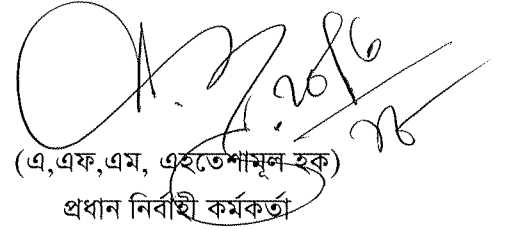 (এ,এফ,এম, এহতেশামূল হক)
প্রধান নির্বাহী কর্মকর্তা